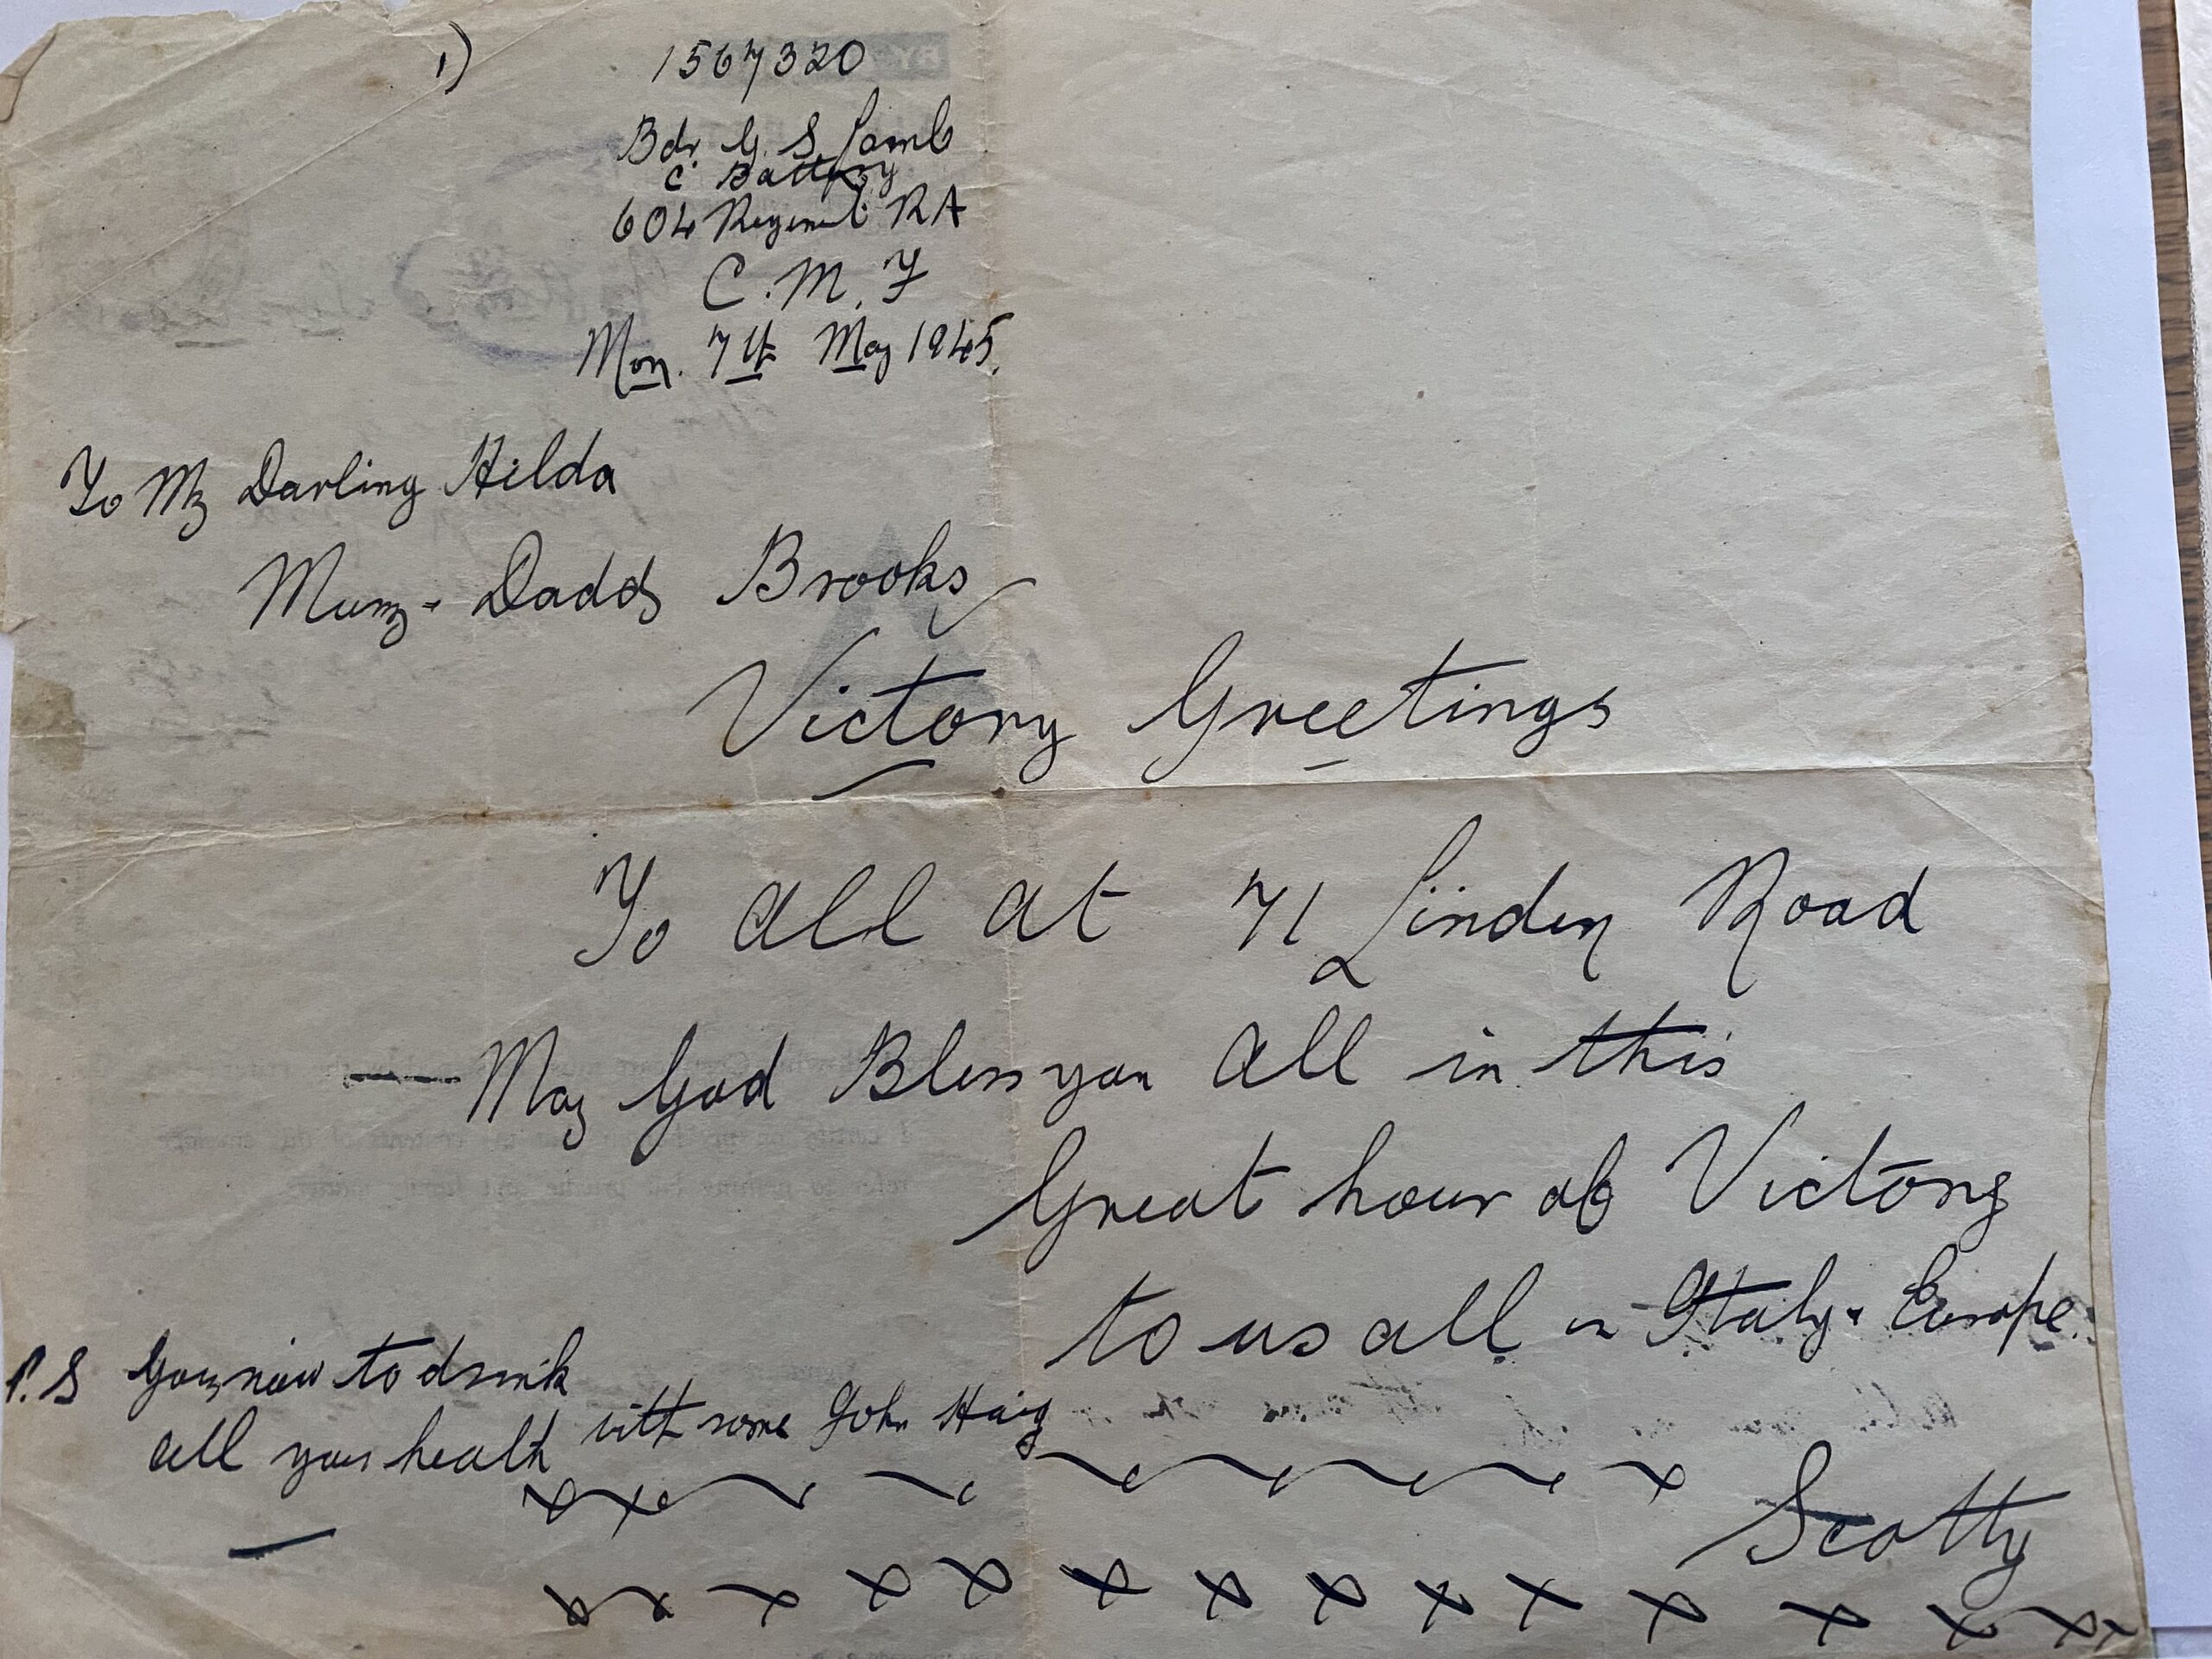 1)
1567320
Bdr. G. S. Lamb
C Battery
604 Regiment RA
C. M. F
Mon. 7th May 1945.
To My Darling Hilda
Mum - Daddy Brooks
Victory Greetings
To all at 71 Linden Road
— May God Bless you all in this
Great hour of Victory
to us all in Italy & Europe.
P.S Going now to drink
all your health with some John Haig
Scotty